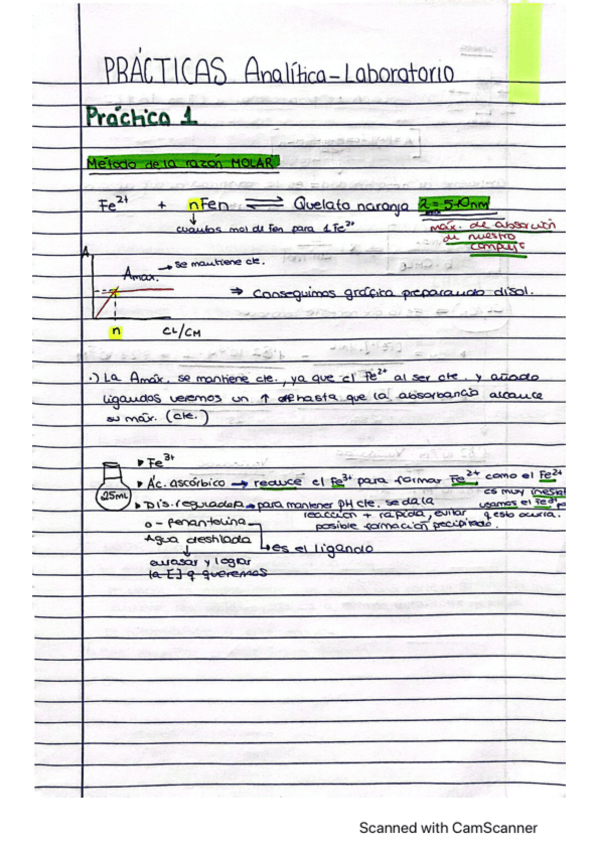 PRÁCTICAS Analítica-Laboratorio
Práctica 1
Método de la razón MOLAR
Fe2+ + nFen ⇌ Quelato naranja λ=510nm
↓
cuántos mol de fen para 1 Fe2+
máx. de absorción
de nuestro
complejo
A
Amáx. → se mantiene cte.
⇒ Conseguimos gráfica preparando disol.
n CL/CM
·) La Amáx. se mantiene cte., ya que el Fe2+ al ser cte. y añado
ligandos veremos un ↑ hasta que la absorbancia alcance
su máx. (cte.)
25mL
▸ Fe3+
▸ Ác. ascórbico → reduce el Fe3+ para formar Fe2+ como el Fe2+
es muy
▸ Dis. reguladora → para mantener pH cte. se da la
usamos el Fe3+
reacción + rápida, evitar
q esto ocurra.
posible formación precipitado.
o-fenantrolina
Agua destilada
→ es el ligando
↓
enrasar y lograr
la [ ] q queremos
Scanned with CamScanner